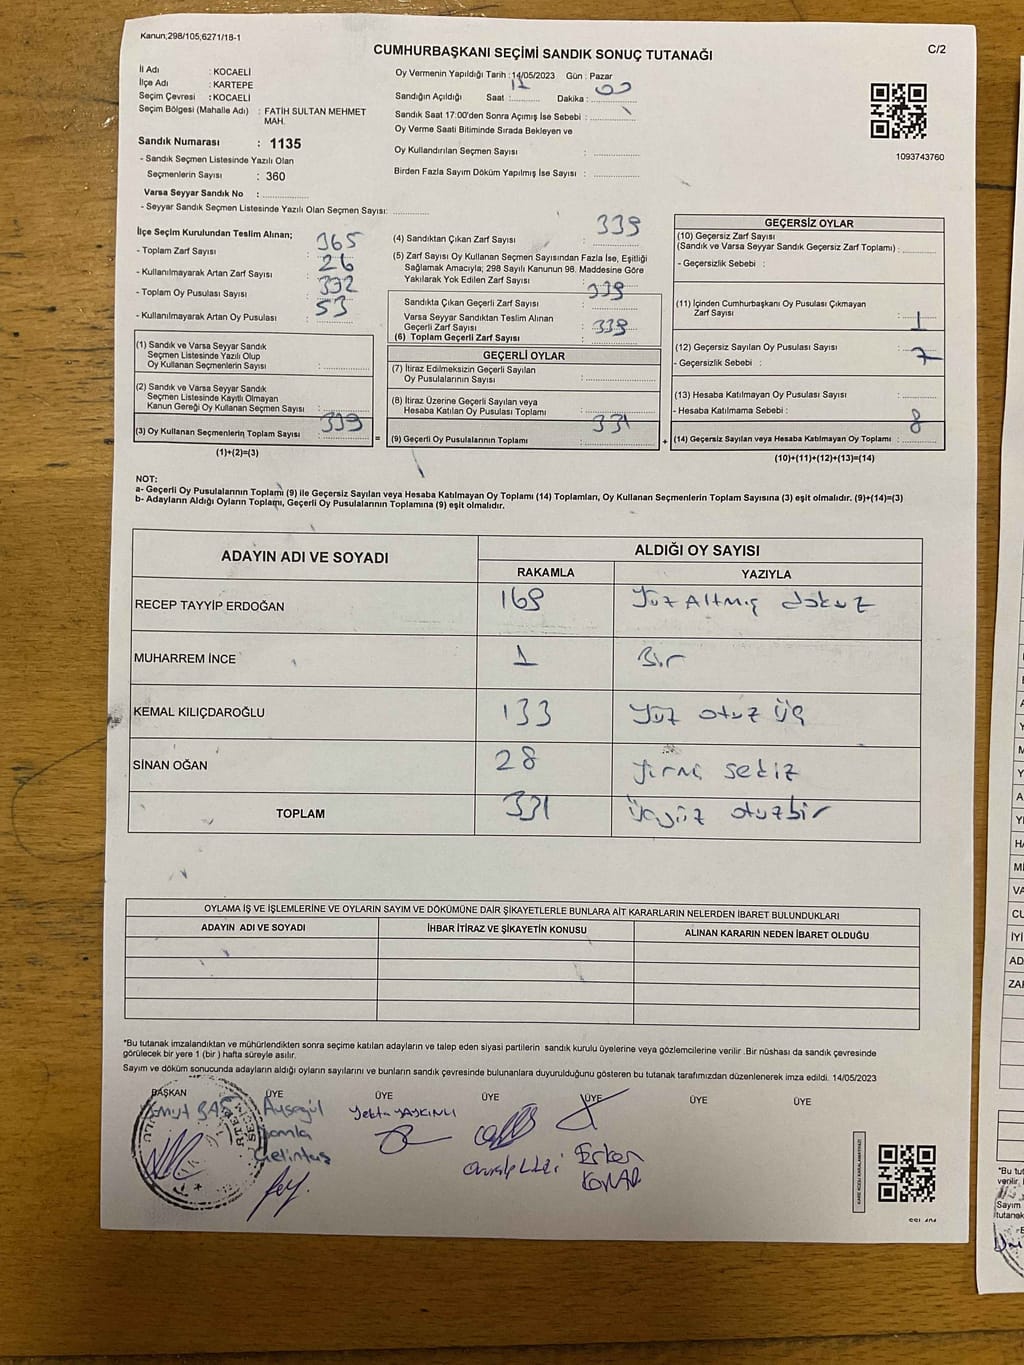 Kanun;298/105;6271/18-1
C/2
CUMHURBAŞKANI SEÇİMİ SANDIK SONUÇ TUTANAĞI
İl Adı : KOCAELİ
İlçe Adı : KARTEPE
Seçim Çevresi : KOCAELİ
Seçim Bölgesi (Mahalle Adı) : FATİH SULTAN MEHMET
MAH.
Sandık Numarası : 1135
- Sandık Seçmen Listesinde Yazılı Olan
Seçmenlerin Sayısı : 360
Varsa Seyyar Sandık No :
- Seyyar Sandık Seçmen Listesinde Yazılı Olan Seçmen Sayısı:
Oy Vermenin Yapıldığı Tarih : 14/05/2023 Gün : Pazar
Sandığın Açıldığı Saat : Dakika : 00
Sandık Saat 17:00'den Sonra Açımış İse Sebebi :
Oy Verme Saati Bitiminde Sırada Bekleyen ve
Oy Kullandırılan Seçmen Sayısı :
Birden Fazla Sayım Döküm Yapılmış İse Sayısı :
1093743760
İlçe Seçim Kurulundan Teslim Alınan;
- Toplam Zarf Sayısı : 365
- Kullanılmayarak Artan Zarf Sayısı : 26
- Toplam Oy Pusulası Sayısı : 392
- Kullanılmayarak Artan Oy Pusulası : 53
(1) Sandık ve Varsa Seyyar Sandık
Seçmen Listesinde Yazılı Olup
Oy Kullanan Seçmenlerin Sayısı :
(2) Sandık ve Varsa Seyyar Sandık
Seçmen Listesinde Kayıtlı Olmayan
Kanun Gereği Oy Kullanan Seçmen Sayısı :
(3) Oy Kullanan Seçmenlerin Toplam Sayısı : 339
(1)+(2)=(3)
(4) Sandıktan Çıkan Zarf Sayısı : 339
(5) Zarf Sayısı Oy Kullanan Seçmen Sayısından Fazla İse, Eşitliği
Sağlamak Amacıyla; 298 Sayılı Kanunun 98. Maddesine Göre
Yakılarak Yok Edilen Zarf Sayısı :
Sandıkta Çıkan Geçerli Zarf Sayısı : 339
Varsa Seyyar Sandıktan Teslim Alınan
Geçerli Zarf Sayısı :
(6) Toplam Geçerli Zarf Sayısı : 339
GEÇERLİ OYLAR
(7) İtiraz Edilmeksizin Geçerli Sayılan
Oy Pusulalarının Sayısı :
(8) İtiraz Üzerine Geçerli Sayılan veya
Hesaba Katılan Oy Pusulası Toplamı :
= (9) Geçerli Oy Pusulalarının Toplamı : 331
GEÇERSİZ OYLAR
(10) Geçersiz Zarf Sayısı
(Sandık ve Varsa Seyyar Sandık Geçersiz Zarf Toplamı) :
- Geçersizlik Sebebi :
(11) İçinden Cumhurbaşkanı Oy Pusulası Çıkmayan
Zarf Sayısı : 1
(12) Geçersiz Sayılan Oy Pusulası Sayısı : 7
- Geçersizlik Sebebi :
(13) Hesaba Katılmayan Oy Pusulası Sayısı :
- Hesaba Katılmama Sebebi :
+ (14) Geçersiz Sayılan veya Hesaba Katılmayan Oy Toplamı : 8
(10)+(11)+(12)+(13)=(14)
NOT:
a- Geçerli Oy Pusulalarının Toplamı (9) ile Geçersiz Sayılan veya Hesaba Katılmayan Oy Toplamı (14) Toplamları, Oy Kullanan Seçmenlerin Toplam Sayısına (3) eşit olmalıdır. (9)+(14)=(3)
b- Adayların Aldığı Oyların Toplamı, Geçerli Oy Pusulalarının Toplamına (9) eşit olmalıdır.
ADAYIN ADI VE SOYADI
ALDIĞI OY SAYISI
RAKAMLA YAZIYLA
RECEP TAYYİP ERDOĞAN 169 Yüz Altmış dokuz
MUHARREM İNCE 1 Bir
KEMAL KILIÇDAROĞLU 133 Yüz otuz üç
SİNAN OĞAN 28 Yirmi sekiz
TOPLAM 331 Üçyüz otuzbir
OYLAMA İŞ VE İŞLEMLERİNE VE OYLARIN SAYIM VE DÖKÜMÜNE DAİR ŞİKAYETLERLE BUNLARA AİT KARARLARIN NELERDEN İBARET BULUNDUKLARI
ADAYIN ADI VE SOYADI İHBAR İTİRAZ VE ŞİKAYETİN KONUSU ALINAN KARARIN NEDEN İBARET OLDUĞU
*Bu tutanak imzalandıktan ve mühürlendikten sonra seçime katılan adayların ve talep eden siyasi partilerin sandık kurulu üyelerine veya gözlemcilerine verilir .Bir nüshası da sandık çevresinde
görülecek bir yere 1 (bir ) hafta süreyle asılır.
Sayım ve döküm sonucunda adayların aldığı oyların sayılarını ve bunların sandık çevresinde bulunanlara duyurulduğunu gösteren bu tutanak tarafımızdan düzenlenerek imza edildi. 14/05/2023
BAŞKAN ÜYE ÜYE ÜYE ÜYE ÜYE ÜYE
Ayşegül
Damla
Gelintaş
Yekta YAYKINLI
Erkan